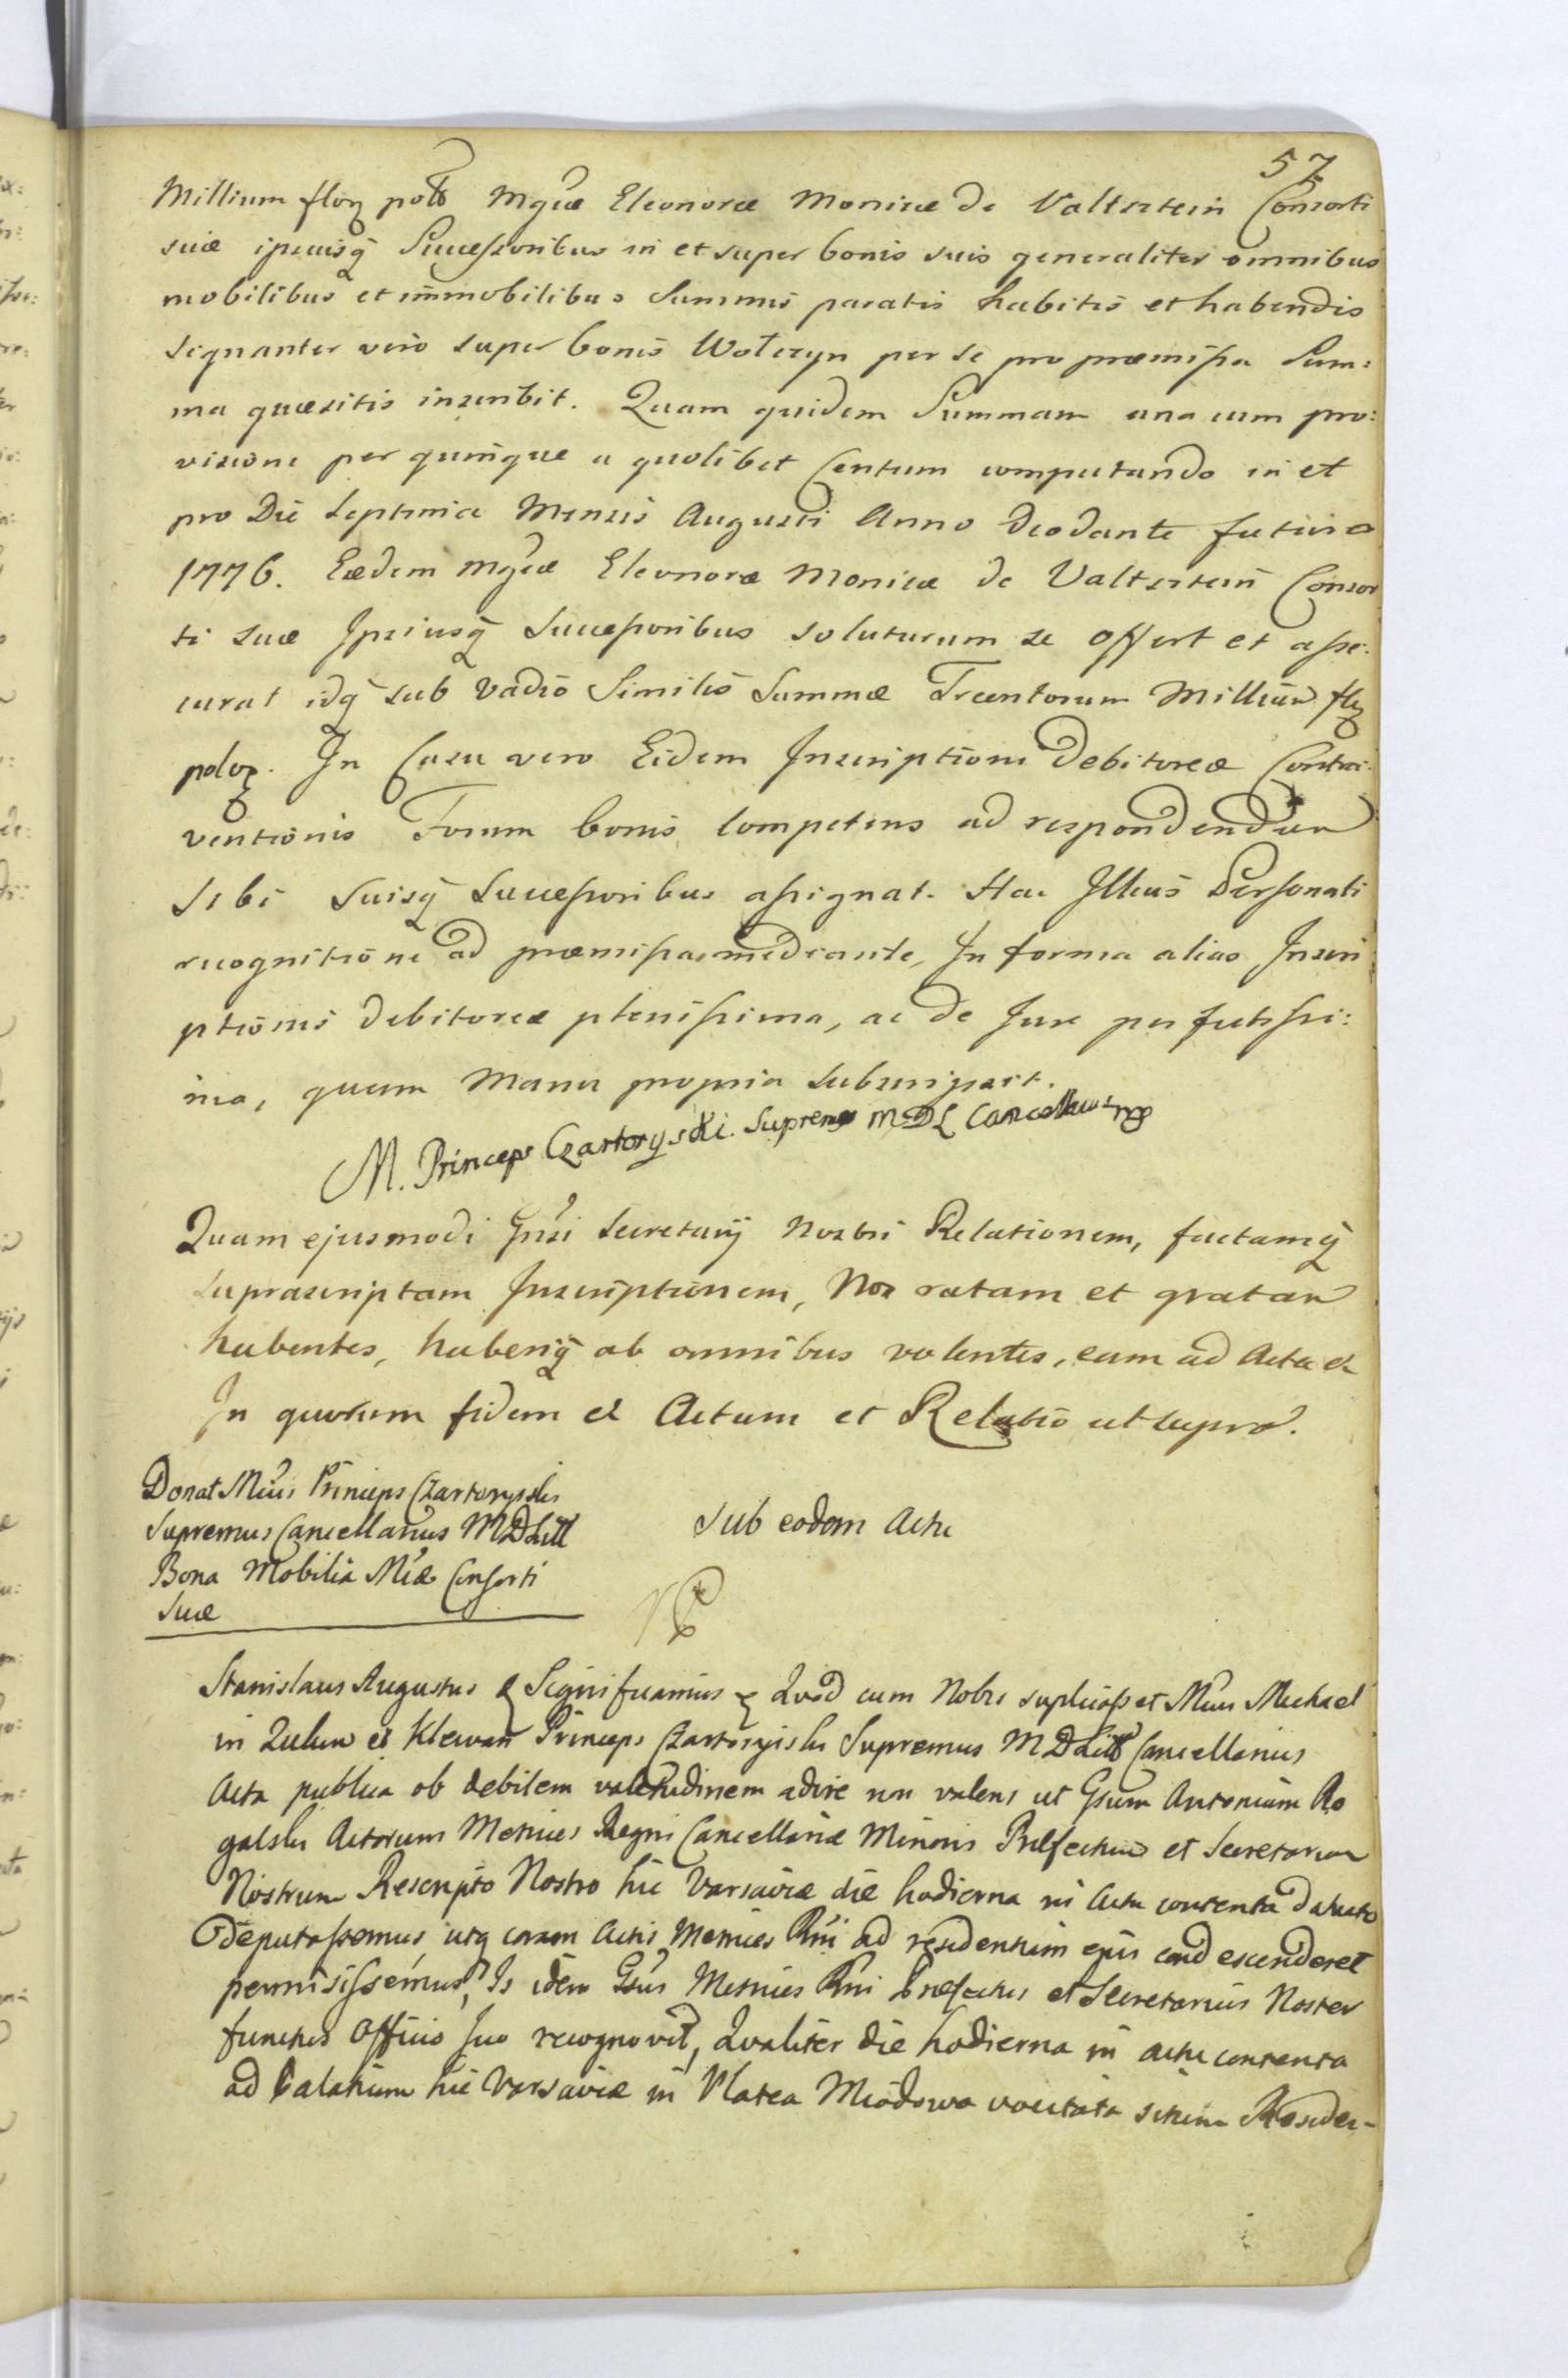 57
Millium florz polo Mgcæ Eleonoræ Monicæ de Valtsztein Consorti
suæ ipsiusq̃ Successoribus in et super bonis suis generaliter omnibus
mobilibus et immobilibus Summis paratis habitis et habendis
signanter vero super bonis Wołczyn per se pro præmissa Sum:
ma quæsitis inscribit. Quam quidem Summam una cum pro:
visione per quinque a quolibet Centum computando in et
pro Die Septima Mensis Augusti Anno Deo dante futuro
1776. Eædem Mgcæ Eleonoræ Monicæ de Valtsztein Consor
ti suæ Ipsiusq̃ Successoribus soluturum se offert et asse:
curat idq̃ sub vadio Similis Summæ Trecentorum Millium flz
polorz. In Casu vero Eidem Inscriptioni Debitoreæ Contra:
ventionis Forum bonis competens ad respondendum
Sibi Suisq̃ Successoribus assignat. Hac Illius Personali
recognitione ad præmissa mediante, In forma alias Inscri
ptionis debitoreæ plenissima, ac de Jure perfectissi:
ma, quam Manu propria subscripsit.
M. Princeps Czartoryski. Supremus M. D L Cancellarius mp
Quam ejusmodi Gnsi Secretarij Nostri Relationem, factamq̃
suprascriptam Inscriptionem, Nos ratam et gratam
habentes, haberiq̃ ab omnibus volentes, eam ad Acta &
In quorum fidem & Actum et Relatio ut supra.
Donat Mcus Princeps Czartoryski
Supremus Cancellarius MDLitt
Bona Mobilia Mcæ Consorti
Suæ
Sub eodem Actu
Stanislaus Augustus & Significamus & Quod cum Nobis suplicasset Mcus Michael
in Zukow et Klewan Princeps Czartoryiski Supremus M D Litt Cancellarius
Acta publica ob debilem valetudinem adire non valens ut Gsum Antonium Ro
galski Actorum Metrices Regni Cancellariæ Minoris Præfectum et Secretarium
Nostrum Rescripto Nostro hic Varsaviæ die hodierna in Actu contenta dato
deputassemus, utq̃ coram Actis Metrices Rni ad residentiam ejus condescenderet
permisissemus, Is idem Gsus Metrices Rni Præfectus et Secretarius Noster
functus Officio suo recognovit, Qualiter die hodierna in actu contenta
ad Palatium hic Varsaviæ in Platea Miodowa vocitata situm Residen-